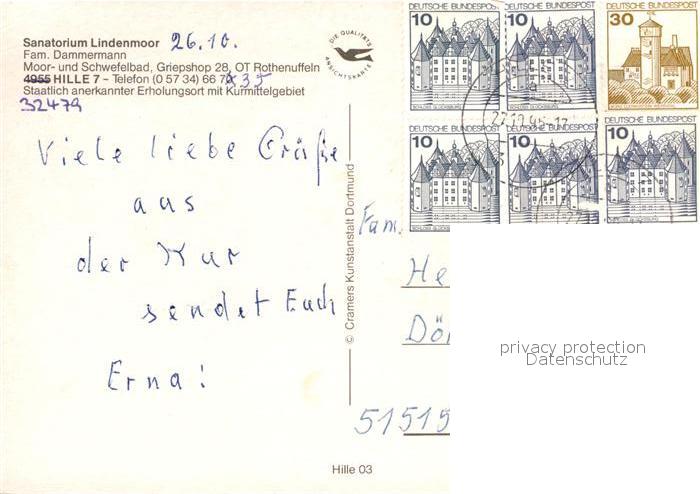 Sanatorium Lindenmoor 26.10.
Fam. Dammermann
Moor- und Schwefelbad, Griepshop 28, OT Rothenuffeln
4955 HILLE 7 – Telefon (0 57 34) 66 7
Staatlich anerkannter Erholungsort mit Kurmittelgebiet
32479
Viele liebe Grüße
aus
der Kur
sendet Euch
Erna!
DIE QUALITÄTS
ANSICHTSKARTE
© Cramers Kunstanstalt Dortmund
Hille 03
DEUTSCHE BUNDESPOST
10
SCHLOSS GLÜCKSBURG
DEUTSCHE BUNDESPOST
10
SCHLOSS GLÜCKSBURG
DEUTSCHE BUNDESPOST
30
DEUTSCHE BUNDESPOST
10
SCHLOSS GLÜCKSBURG
DEUTSCHE BUNDESPOST
10
SCHLOSS GLÜCKSBURG
DEUTSCHE BUNDESPOST
10
SCHLOSS GLÜCKSBURG
Fam.
He
Dör
51519
privacy protection
Datenschutz